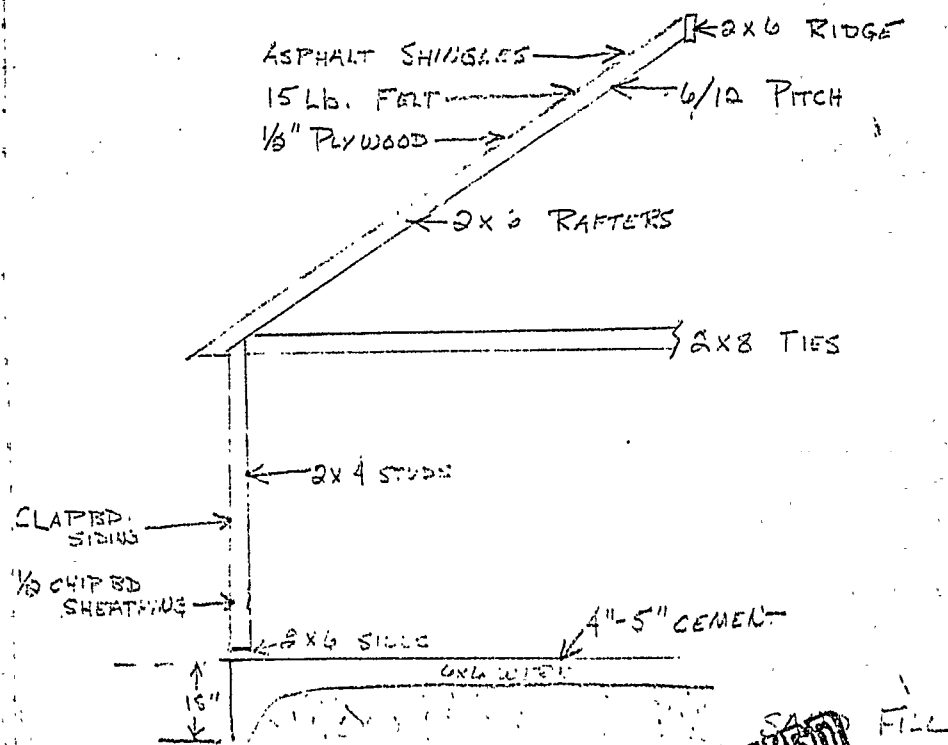 2x6 RIDGE
ASPHALT SHINGLES
15 Lb. FELT
6/12 PITCH
1/2" PLYWOOD
2x6 RAFTERS
2x8 TIES
2x4 STUDS
CLAPBD.
SIDING
1/2 CHIP BD
SHEATHING
2x6 SILLS
4"-5" CEMENT
6x6 WIRE
18"
SAND FILL